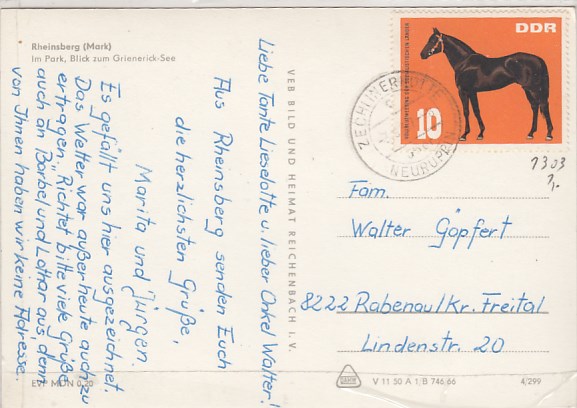 Rheinsberg (Mark)
Im Park, Blick zum Grienerick-See
Liebe Tante Lieselotte u. lieber Onkel Walter!
Aus Rheinsberg senden Euch
die herzlichsten Grüße,
Marita und Jürgen.
Es gefällt uns hier ausgezeichnet.
Das Wetter war außer heute auch zu
ertragen. Richtet bitte viele Grüße
auch an Bärbel und Lothar aus, denn
von Ihnen haben wir keine Adresse.
EVP MDN 0,20
VEB BILD UND HEIMAT REICHENBACH I. V.
DDR
10
ZECHLINERHÜTTE
NEURUPPIN
1303
1,-
Fam.
Walter Göpfert
8222 Rabenau/Kr. Freital
Lindenstr. 20
V 11 50 A 1/B 746 66
4/299